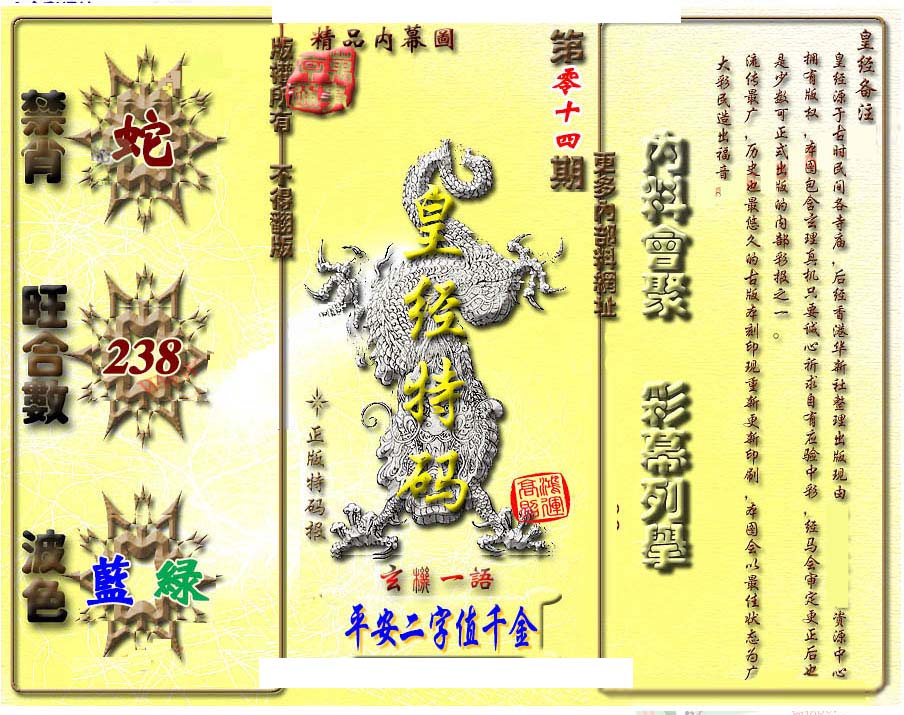 精品内幕圖
第零十四期
版權所有 不得翻版
更多内部料網址
禁肖
蛇
旺合數
238
波色
藍 綠
皇经特码
正版特码报
鴻運高照
玄機一語
平安二字值千金
内料會聚
彩幕列舉
皇经备注
皇经源于古时民间各寺庙,后经香港华新社整理出版现由 资源中心
拥有版权,本图包含玄理真机只要诚心祈求自有应验中彩,经马会审定更正后也
是少数可正式出版的内部彩报之一。
流传最广,历史也最悠久的古版本刻印现重新更新印刷,本图会以最佳状态为广
大彩民造出福音